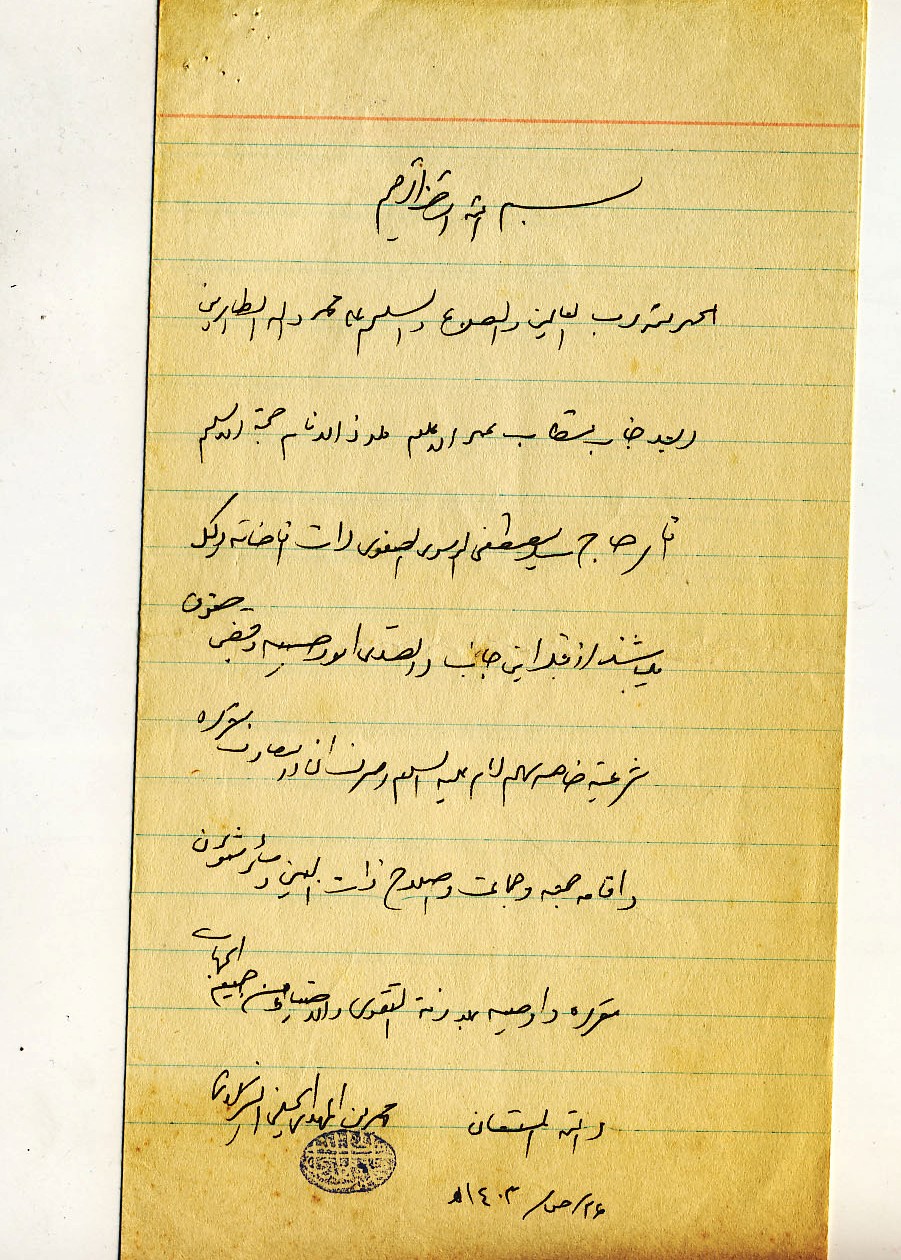 بسم الله الرحمن الرحیم
الحمد لله رب العالمین والصلوة والسلام علی محمد وآله الطاهرین
وبعد جناب مستطاب عمدة الاعلام ملاذ الانام حجة الاسلام
آقای حاج سید مصطفی الموسوی الصفوی دامت افاضاته وکیل
می‌باشند از قبل این جانب در تصدی امور حسبیه و قبض حقوق
شرعیة خاصه سهم امام علیه السلام و صرف آن در مصارف مقرره
و اقامه جمعه و جماعت و اصلاح ذات البین و سائر شئون
مقرره و اوصیه بملازمة التقوی والاحتیاط من جمیع الجهات
والله المستعان محمد بن المهدی الحسینی الشیرازی
۲۶/ص/۱۴۰۳ه